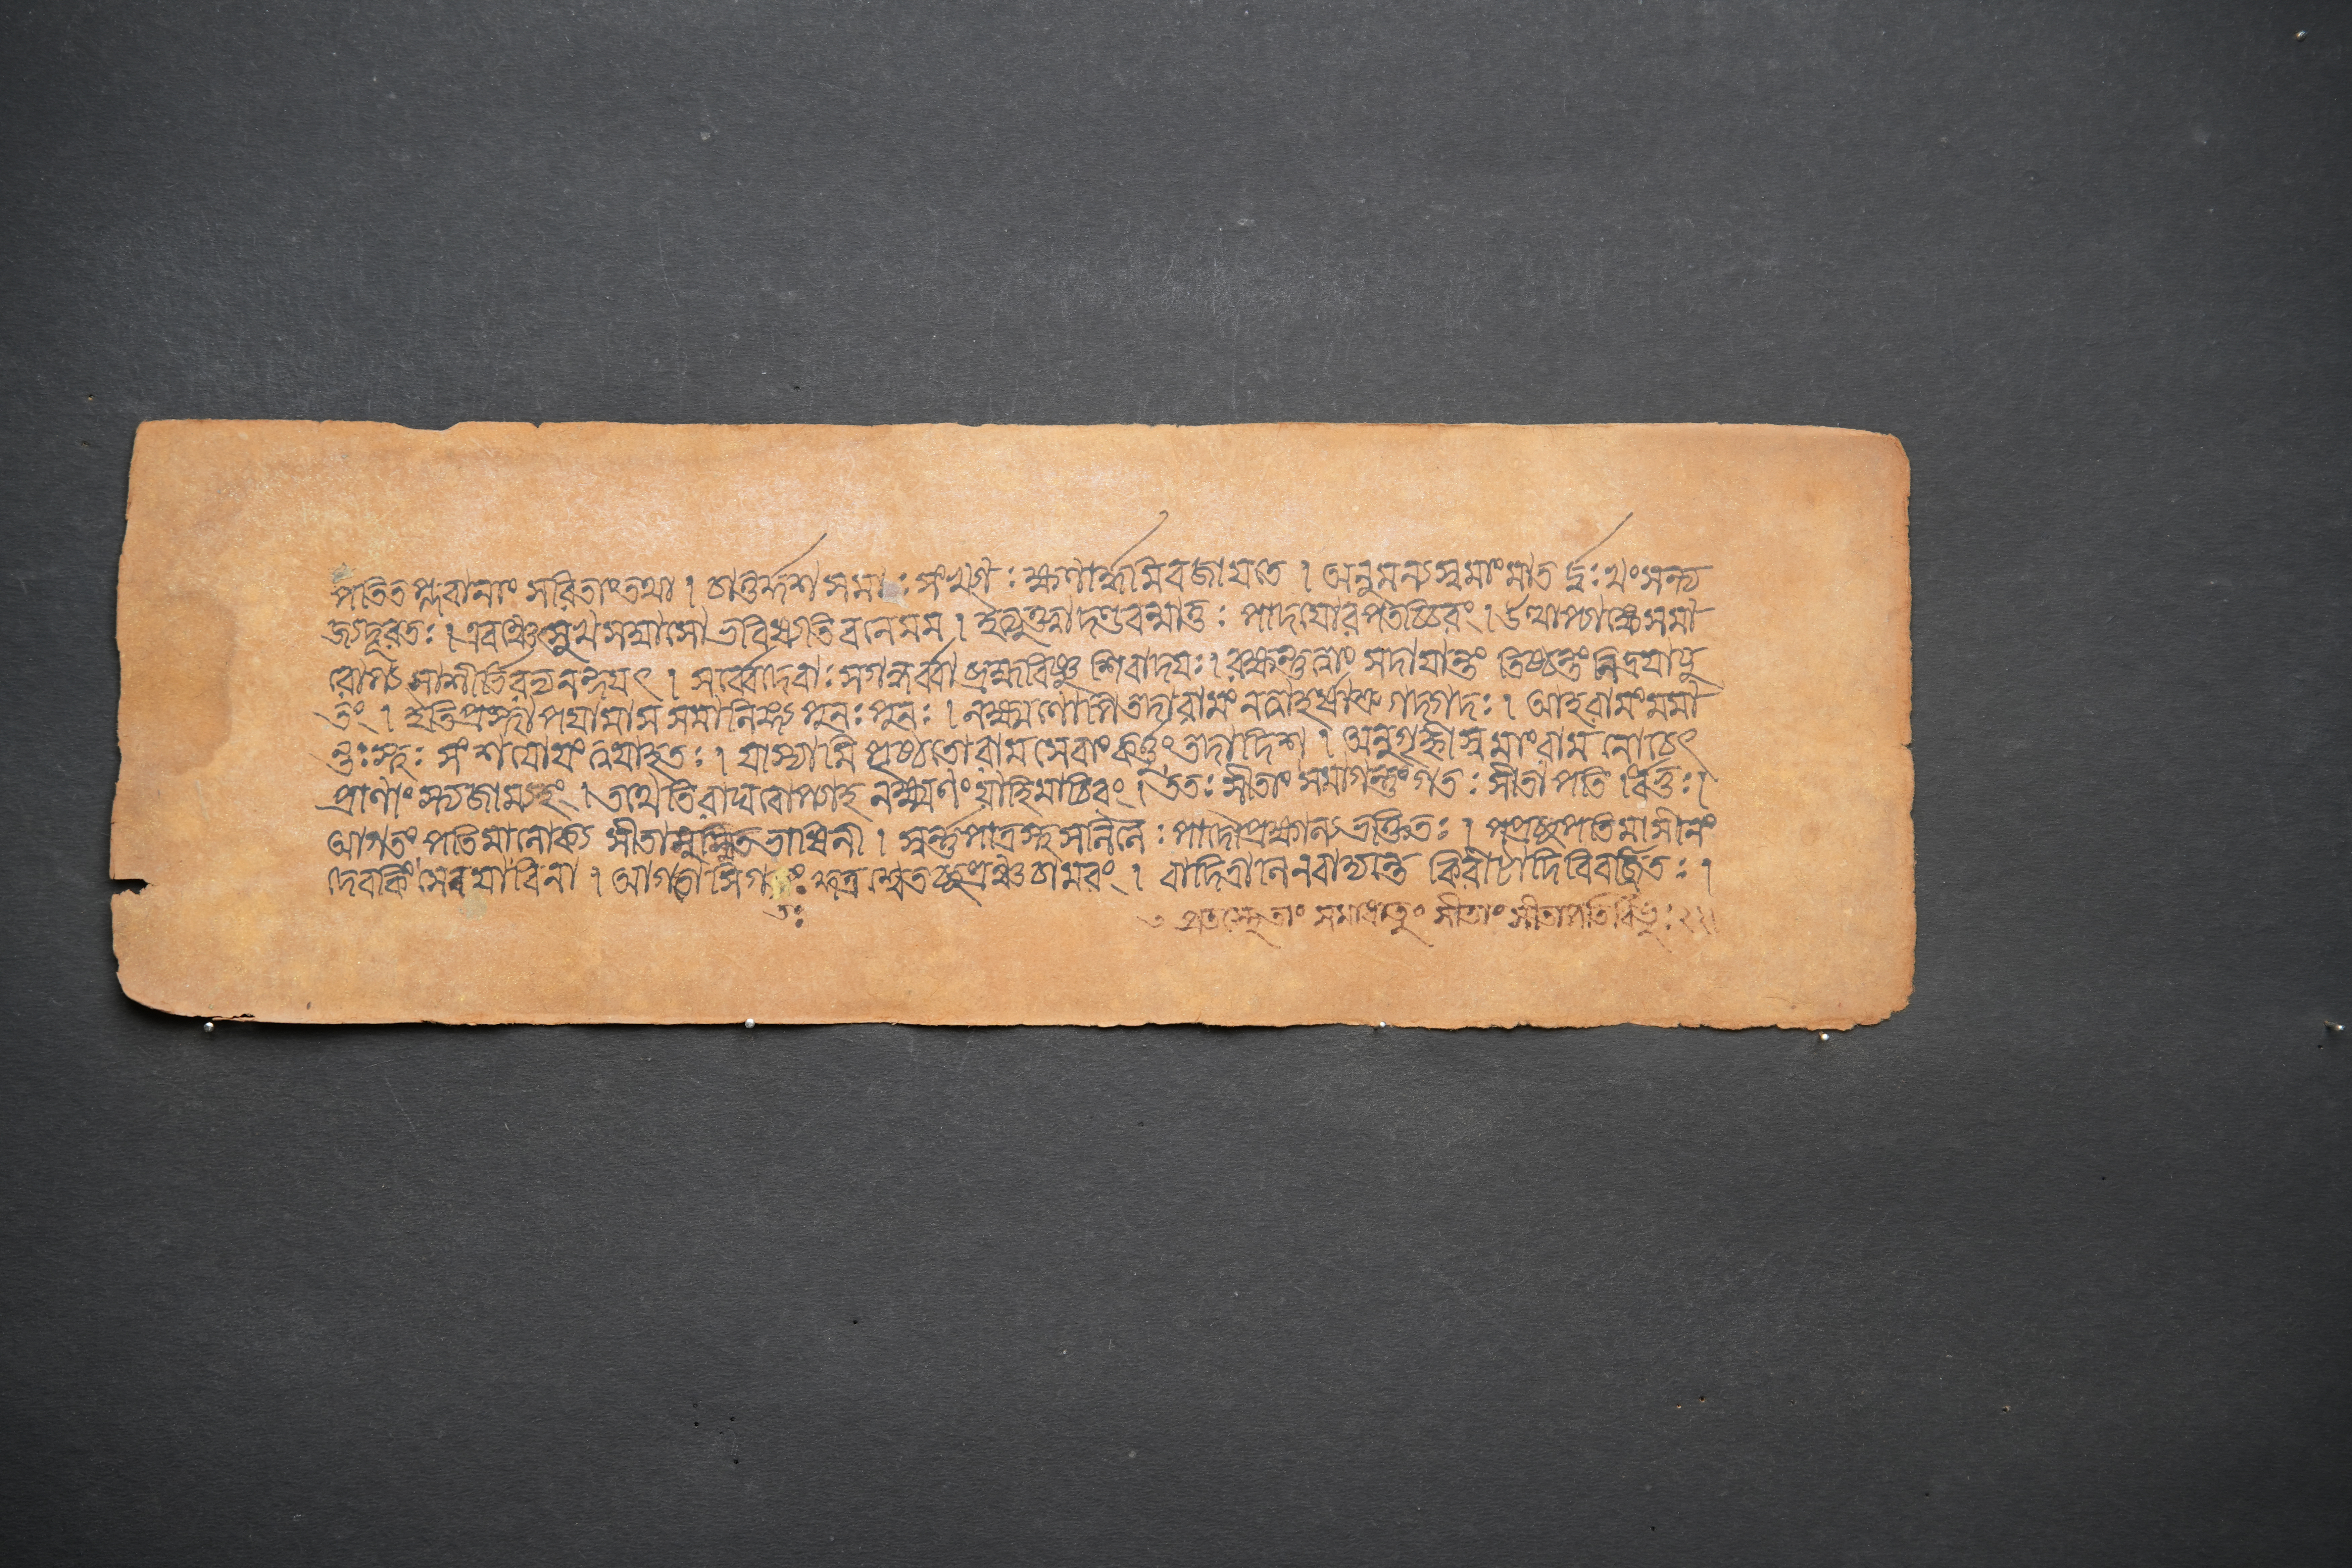 পতিতপ্লবানাং সরিতাং তথা । চতুর্দ্দশসমাঃ সংখ্যাঃ ক্ষণার্দ্ধমিবজাযতে । অনুমন্যস্বমাংমাত র্দুঃখংসন্ত্য
জ্যদূরতঃ । এবঞ্চেৎসুখসম্বাসো ভবিষ্যতিবনেমম । ইত্যুক্ত্বাদণ্ডবন্মাতুঃ পাদযোরপতচ্চিরং । উত্থাপ্যাঙ্কেসমা
রোপ্যআশীর্ভিরভ্যনন্দযৎ । সর্ব্বেদেবাঃ সগন্ধর্ব্বা ব্রহ্মবিষ্ণুশিবাদযঃ । রক্ষন্তুত্বাং সদাযান্তং তিষ্ঠন্তং নিদ্রযাযু
তং । ইতিপ্রস্থাপযামাস সমালিঙ্গ্য পুনঃ পুনঃ । লক্ষ্মণোপিতদারামং নত্বাহর্ষাশ্রুগদ্গদঃ । আহরামংমমা
ন্তঃস্থঃ সংশযোযং ত্বযাহৃতঃ । যাস্যামি পৃষ্ঠতোরাম সেবাং কর্ত্তুং তদাদিশ । অনুগৃহ্ণীস্বমাংরাম নোচেৎ
প্রাণাং স্ত্যজাম্যহং । তথেতিরাঘবোপ্যাহ লক্ষ্মণং যাহিমাচিরং । ততঃ সীতাং সমাগন্তুং গতঃ সীতাপতি
আগতং পতিমালোক্য সীতাসুস্মিতভাষিনী । স্বর্ন্নপাত্রস্থসলিলৈঃ পাদৌপ্রক্ষাল্যভক্তিতঃ । পপ্রচ্ছপতিমাসীনং
দেবকিং সেনযাবিনা । আগতোসিগতঃ কুত্র শ্বেতচ্ছত্রঞ্চচামরং । বাদিত্রানিনবাদ্যন্তে কিরীটাদিবিবর্জ্জিতঃ ।
তঃ
প্রতস্থেতাং সমাধাতুং সীতাং সীতাপতির্বিভুঃ